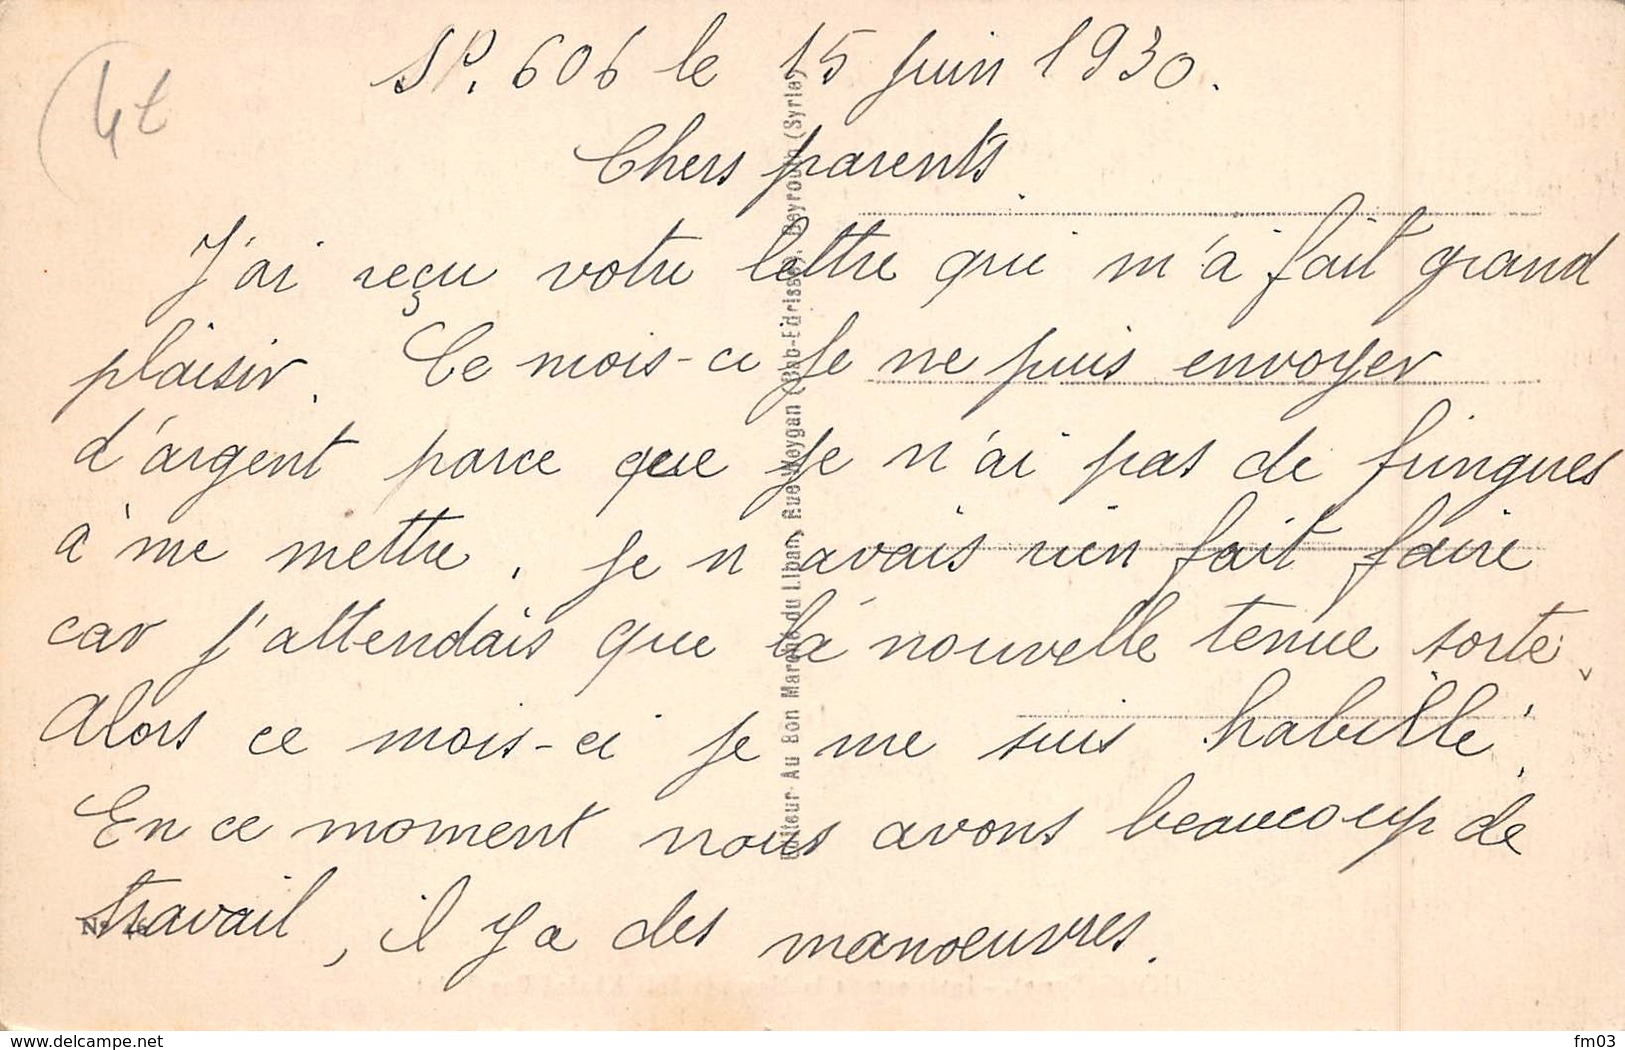 4t
SP. 606 le 15 Juin 1930.
Chers parents
J'ai reçu votre lettre qui m'à fait grand
plaisir. Ce mois-ci Je ne puis envoyer
d'argent parce que Je n'ai pas de fringues
à me mettre. Je n avais rien fait faire
car J'attendais que là nouvelle tenue sorte.
Alors ce mois-ci Je me suis habillé.
En ce moment nous avons beaucoup de
travail, il y a des manoeuvres.
Editeur Au Bon Marché du Liban, Rue Weygan (Bab-Edrisse), Beyrouth (Syrie)
Nº 46
www.delcampe.net
fm03